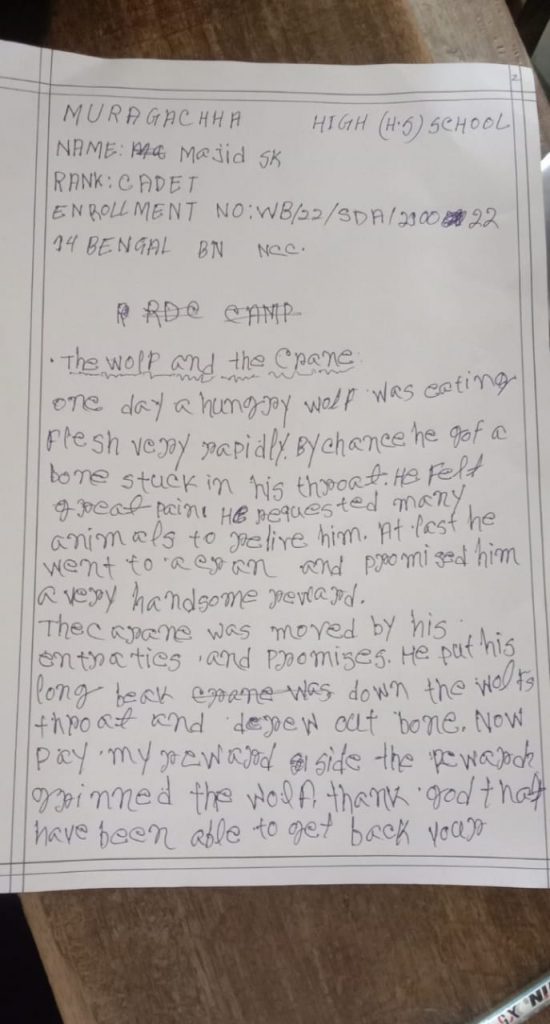 2
MURAGACHHA HIGH (H.S) SCHOOL
NAME: Majid SK
RANK: CADET
ENROLLMENT NO: WB/22/SDA/2900 22
14 BENGAL BN NCC.
RDC CAMP
. The wolf and the Crane
one day a hungry wolf was eating
flesh very rapidly. By chance he got a
bone stuck in his throat. He Felt
great pain. He requested many
animals to relive him. At last he
went to a cran and promised him
a very handsome reward.
The crane was moved by his
entraties and promises. He put his
long beak crane was down the wolfs
throat and derew out bone. Now
pay my reward side the reward
grinned the wolf, thank god that
have been able to get back your
IN XS